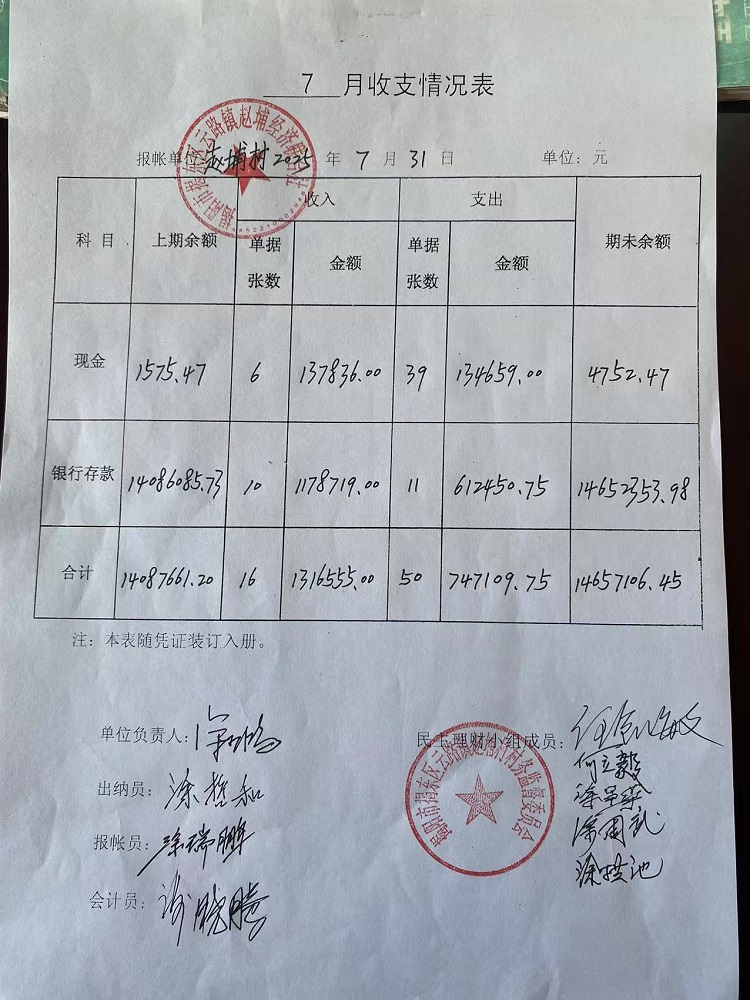 7 月收支情况表
报帐单位:赵埔村 2025 年 7 月 31 日 单位: 元
揭阳市揭东区云路镇赵埔经济联合社
科 目 上期余额 收入 支出 期未余额
单据张数 金额 单据张数 金额
现金 1575.47 6 137836.00 39 134659.00 4752.47
银行存款 14086085.73 10 1178719.00 11 612450.75 14652353.98
合计 14087661.20 16 1316555.00 50 747109.75 14657106.45
注: 本表随凭证装订入册。
单位负责人:
民主理财小组成员:
何立毅
出纳员: 涂哲和
报帐员: 涂瑞鹏
会计员: 许晓腾
揭阳市揭东区云路镇赵埔村村务监督委员会